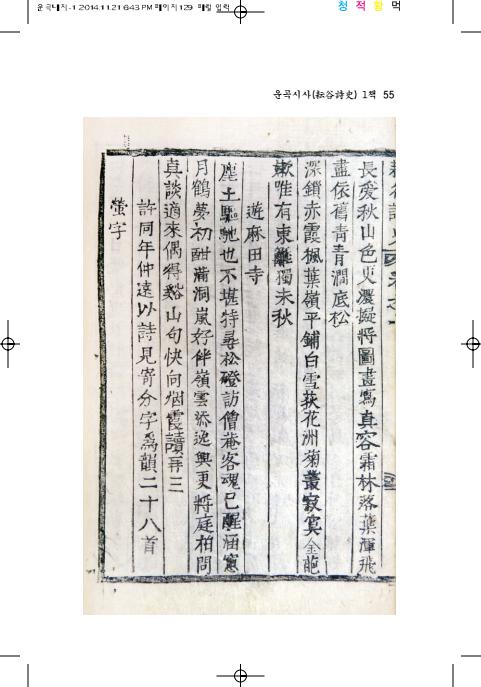 운곡내지-1 2014.11.21 6:43 PM 페이지129 매일 입력
청 적 황 먹
운곡시사(耘谷詩史) 1책 55
長愛秋山色更濃擬將圖畫寫真容霜林落葉渾飛
盡依舊青青澗底松
深鎖赤霞楓葉嶺平鋪白雪荻花洲菊叢寂寞金葩
嫩唯有東籬獨未秋
遊麻田寺
塵土驅馳也不堪特尋松磴訪僧菴客魂已醒涵窓
月鶴夢初酣滿洞嵐好伴嶺雲添逸興更將庭柏問
真談適來偶得谿山句快向烟霞讀再三
許同年仲遠以詩見寄分字爲韻二十八首
螢字